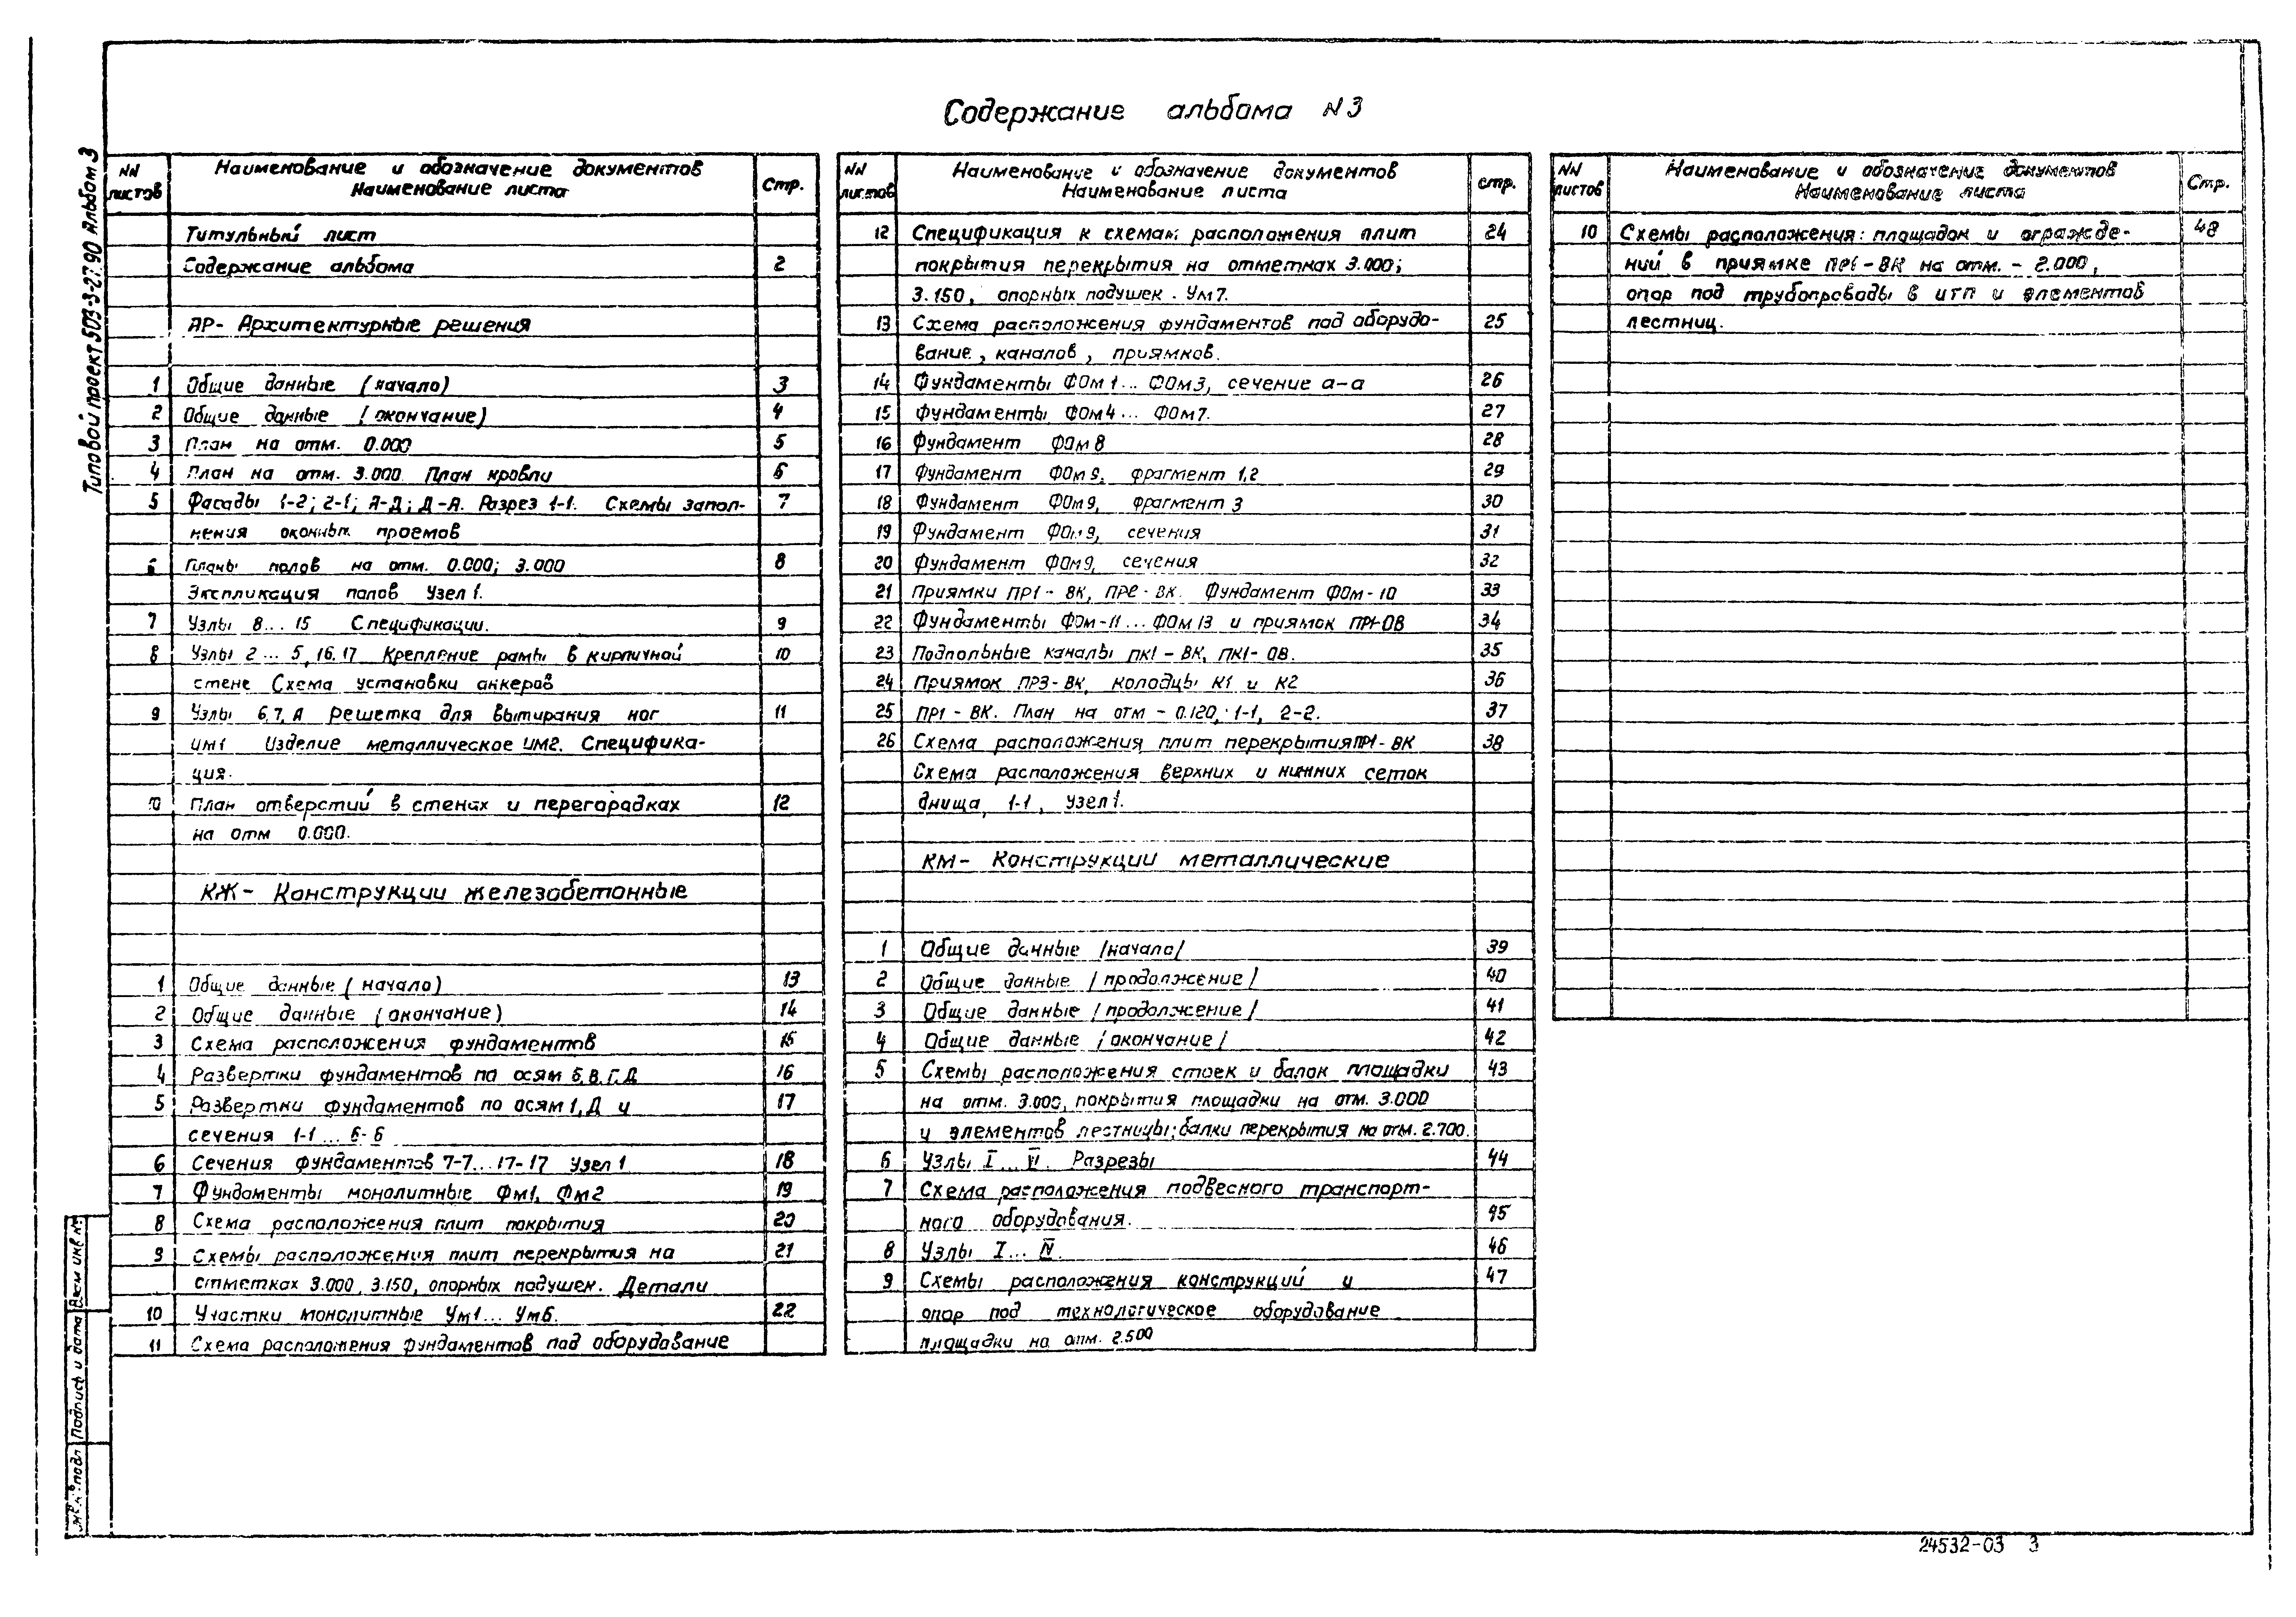 Содержание альбома N3
Типовой проект 503-3-27.90 Альбом 3
NN листов
Наименование и обозначение документов
Наименование листа
Стр.
Титульный лист
Содержание альбома 2
АР- Архитектурные решения
1 Общие данные (начало) 3
2 Общие данные (окончание) 4
3 План на отм. 0.000 5
4 План на отм. 3.000 План кровли 6
5 Фасады 1-2; 2-1; А-Д; Д-А. Разрез 1-1. Схемы запол- 7
нения оконных проемов
6 Планы полов на отм. 0.000; 3.000 8
Экспликация полов Узел 1.
7 Узлы 8...15 Спецификации. 9
8 Узлы 2...5, 16, 17 Крепление рамы в кирпичной 10
стене Схема установки анкеров
9 Узлы 6, 7, А решетка для вытирания ног 11
им1 Изделие металлическое им2. Специфика-
ция.
10 План отверстий в стенах и перегородках 12
на отм 0.000.
КЖ- Конструкции железобетонные
1 Общие данные (начало) 13
2 Общие данные (окончание) 14
3 Схема расположения фундаментов 15
4 Развертки фундаментов по осям Б, В, Г, Д 16
5 Развертки фундаментов по осям 1, Д и 17
сечения 1-1...6-6
6 Сечения фундаментов 7-7...17-17 Узел 1 18
7 Фундаменты монолитные Фм1, Фм2 19
8 Схема расположения плит покрытия 20
9 Схемы расположения плит перекрытия на 21
отметках 3.000, 3.150, опорных подушек. Детали
10 Участки монолитные Ум1...Ум6. 22
11 Схема расположения фундаментов под оборудование
NN листов
Наименование и обозначение документов
Наименование листа
стр.
12 Спецификация к схемам расположения плит 24
покрытия перекрытия на отметках 3.000;
3.150, опорных подушек. Ум7.
13 Схема расположения фундаментов под оборудо- 25
вание, каналов, приямков.
14 Фундаменты ФОм1...ФОм3, сечение а-а 26
15 Фундаменты ФОм4...ФОм7. 27
16 Фундамент ФОм8 28
17 Фундамент ФОм9, фрагмент 1,2 29
18 Фундамент ФОм9, фрагмент 3 30
19 Фундамент ФОм9, сечения 31
20 Фундамент ФОм9, сечения 32
21 Приямки ПР1-ВК, ПР2-ВК. Фундамент ФОм-10 33
22 Фундаменты ФОм-11...ФОм13 и приямок ПР1-ОВ 34
23 Подпольные каналы ПК1-ВК, ПК1-ОВ. 35
24 Приямок ПР3-ВК, колодцы К1 и К2 36
25 ПР1-ВК. План на отм -0.120, 1-1, 2-2. 37
26 Схема расположения плит перекрытия ПР1-ВК 38
Схема расположения верхних и нижних сеток
днища, 1-1, узел 1.
КМ- Конструкции металлические
1 Общие данные /начало/ 39
2 Общие данные /продолжение/ 40
3 Общие данные /продолжение/ 41
4 Общие данные /окончание/ 42
5 Схемы расположения стоек и балок площадки 43
на отм. 3.000, покрытия площадки на отм. 3.000
и элементов лестницы; балки перекрытия на отм. 2.700.
6 Узлы I...VI. Разрезы 44
7 Схема расположения подвесного транспорт-
ного оборудования. 45
8 Узлы I...IV. 46
9 Схемы расположения конструкций и 47
опор под технологическое оборудование
площадки на отм. 2.500
NN листов
Наименование и обозначение документов
Наименование листа
Стр.
10 Схемы расположения: площадок и огражде- 48
ний в приямке ПР1-ВК на отм. -2.000,
опор под трубопроводы в ИТП и элементов
лестниц.
Взам инв №
Подпись и дата
подл
24532-03 3